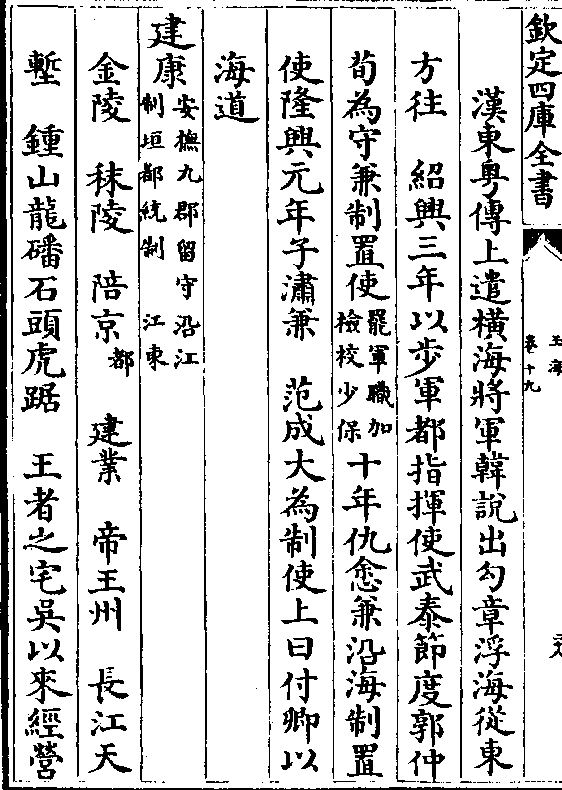 欽定四庫全書
玉海
卷十九
漢東粤傳上遣横海將軍韓說出勾章浮海從東
方往　紹興三年以步軍都指揮使武泰節度郭仲
荀為守兼制置使罷軍職加檢校少保十年仇悆兼沿海制置
使隆興元年子潚兼　范成大為制使上曰付卿以
海道
建康安撫九郡留守沿江制垣都統制　江東
金陵　秣陵　陪京都　建業　帝王州　長江天
塹　鍾山龍磻石頭虎踞　王者之宅吳以來經營